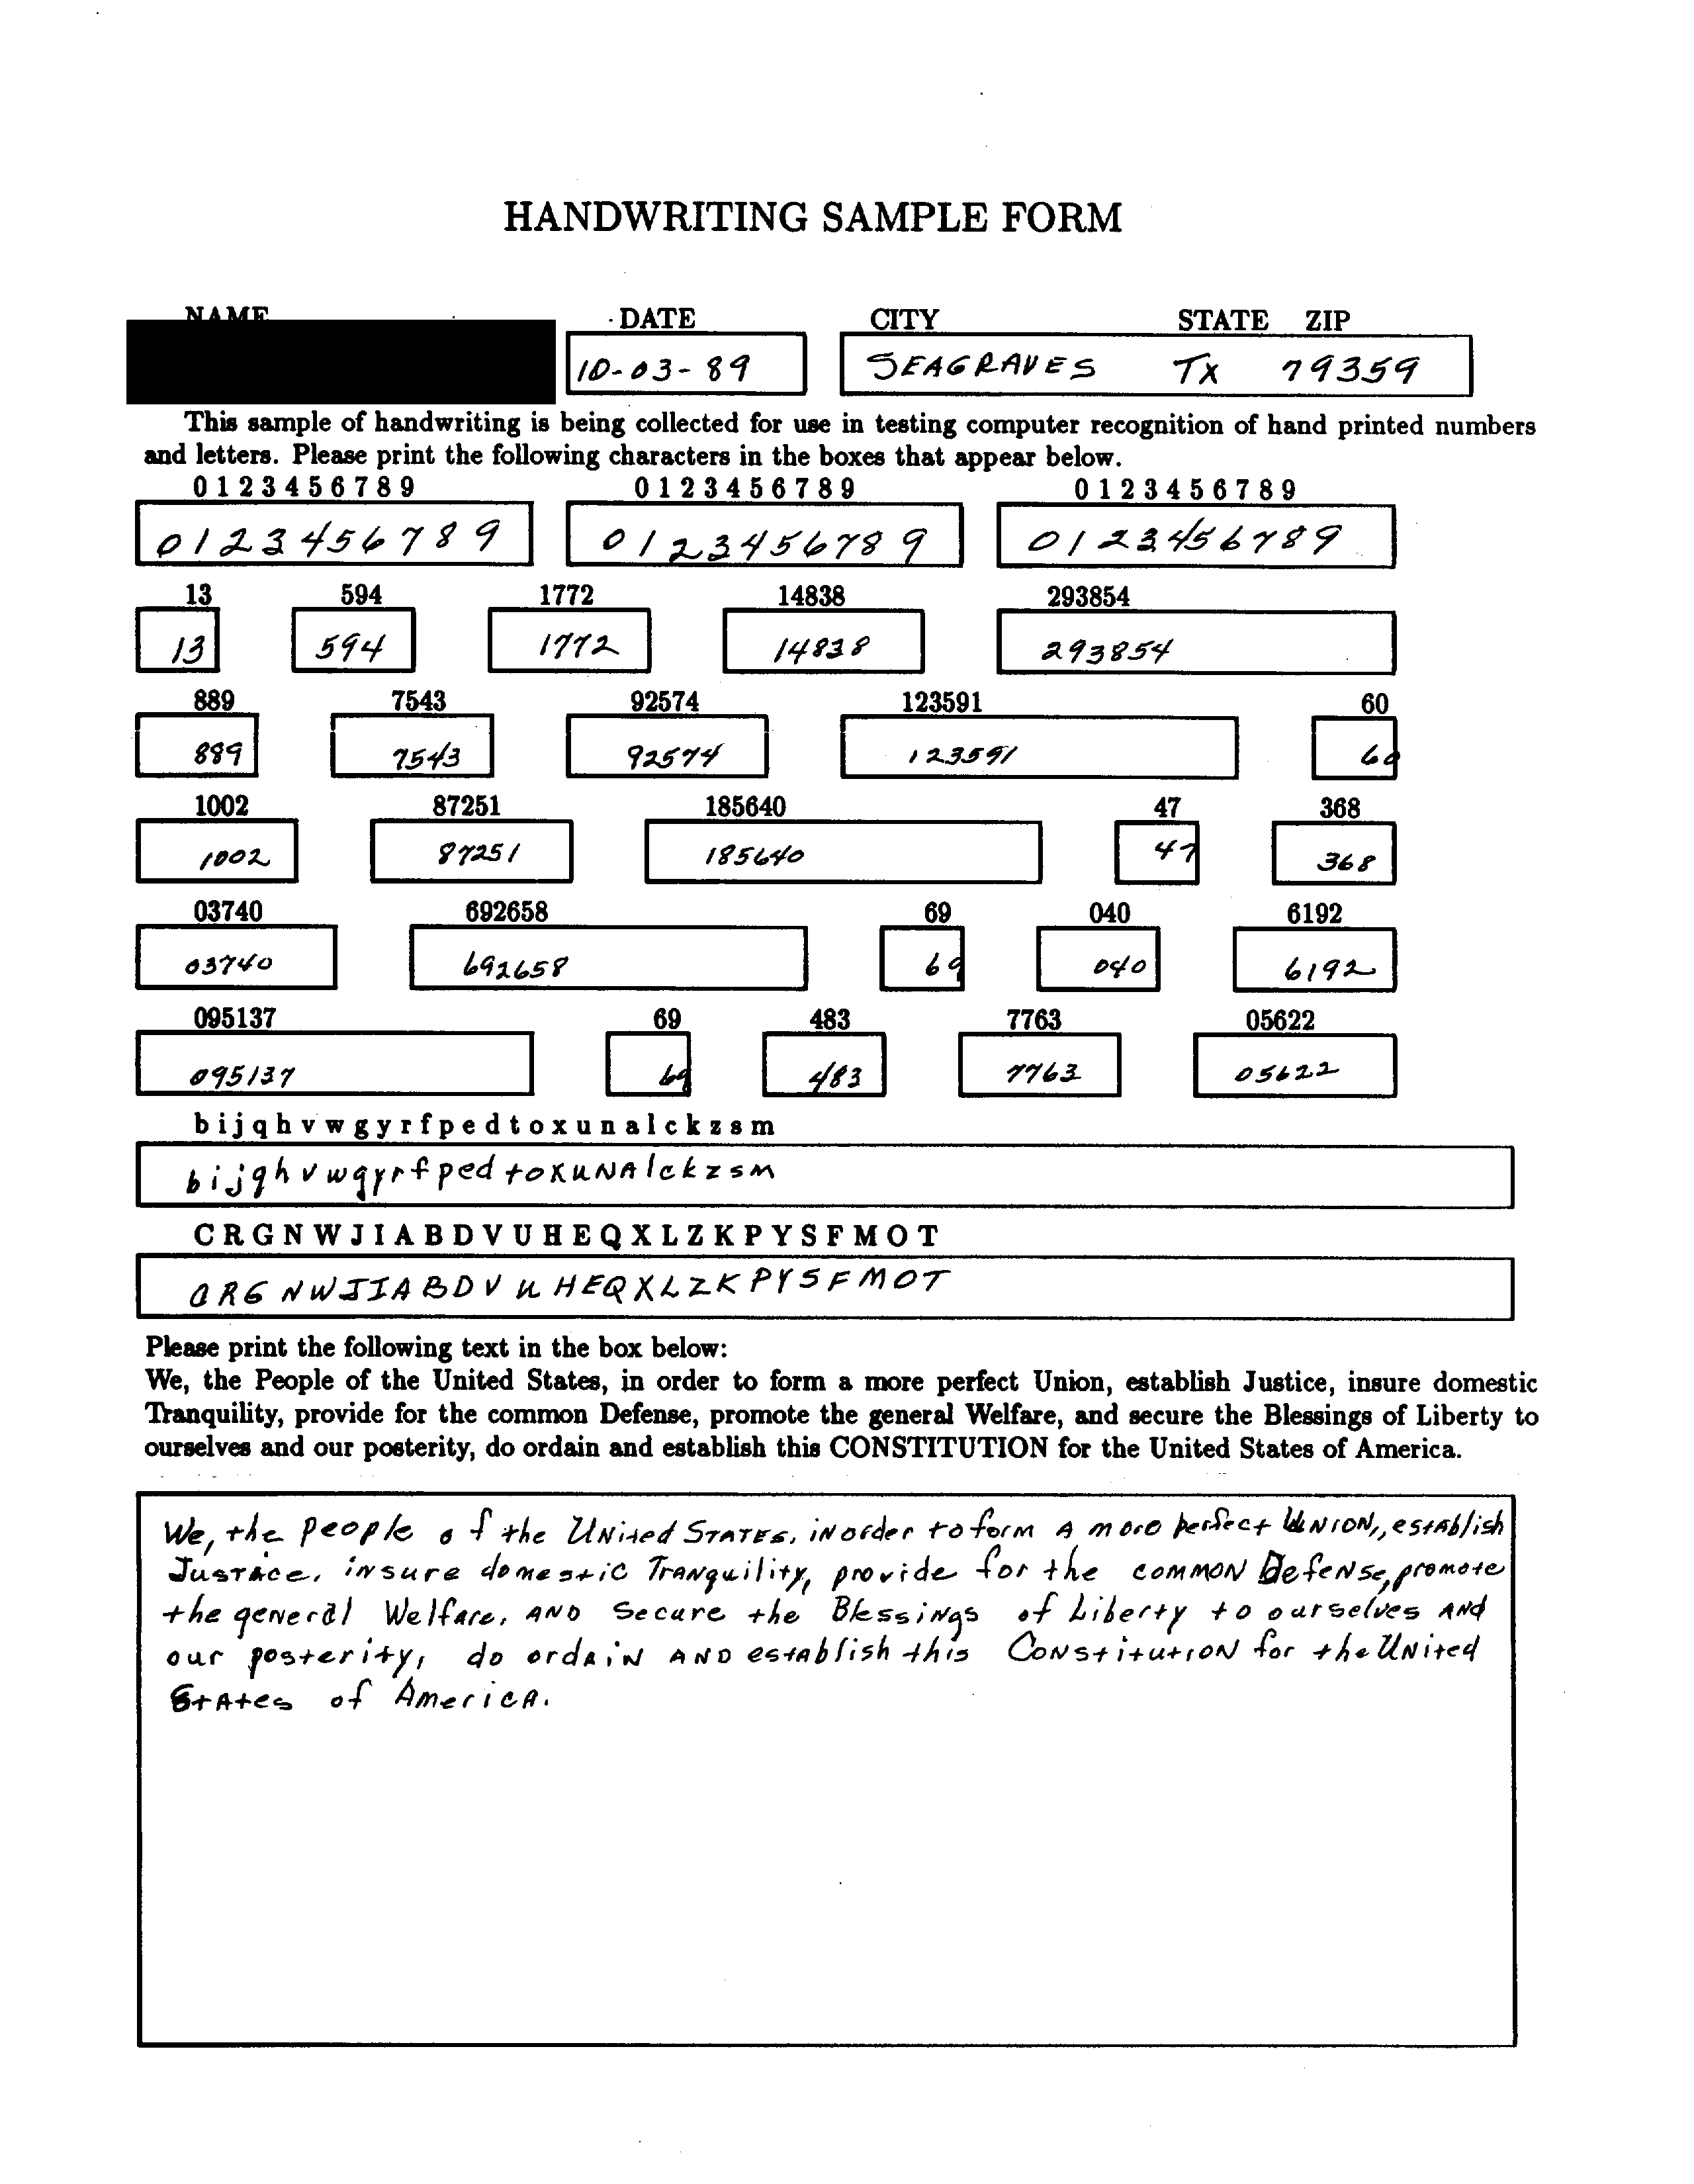 HANDWRITING SAMPLE FORM
NAME DATE CITY STATE ZIP
10-03-89 SEAGRAVES TX 79359
This sample of handwriting is being collected for use in testing computer recognition of hand printed numbers
and letters. Please print the following characters in the boxes that appear below.
0 1 2 3 4 5 6 7 8 9 0 1 2 3 4 5 6 7 8 9 0 1 2 3 4 5 6 7 8 9
0 1 2 3 4 5 6 7 8 9 0 1 2 3 4 5 6 7 8 9 0 1 2 3 4 5 6 7 8 9
13 594 1772 14838 293854
13 594 1772 14838 293854
889 7543 92574 123591 60
889 7543 92574 123591 60
1002 87251 185640 47 368
1002 87251 185640 47 368
03740 692658 69 040 6192
03740 692658 69 040 6192
095137 69 483 7763 05622
095137 69 483 7763 05622
b i j q h v w g y r f p e d t o x u n a l c k z s m
b i j q h v w g y r f p e d t o x u N A l c k z s m
C R G N W J I A B D V U H E Q X L Z K P Y S F M O T
C R G N W J I A B D V U H E Q X L Z K P Y S F M O T
Please print the following text in the box below:
We, the People of the United States, in order to form a more perfect Union, establish Justice, insure domestic
Tranquility, provide for the common Defense, promote the general Welfare, and secure the Blessings of Liberty to
ourselves and our posterity, do ordain and establish this CONSTITUTION for the United States of America.
We, the people of the UNited STATES, iN order to form A more perfect UNION,, estAblish
Justice, iNsure domestic TrANquility, provide for the commoN DefeNse, promote
the geNeral Welfare, AND secure the BlessiNgs of Liberty to ourselves ANd
our posterity, do ordAiN AND estAblish this CoNstitutioN for the UNited
StAtes of AmericA.